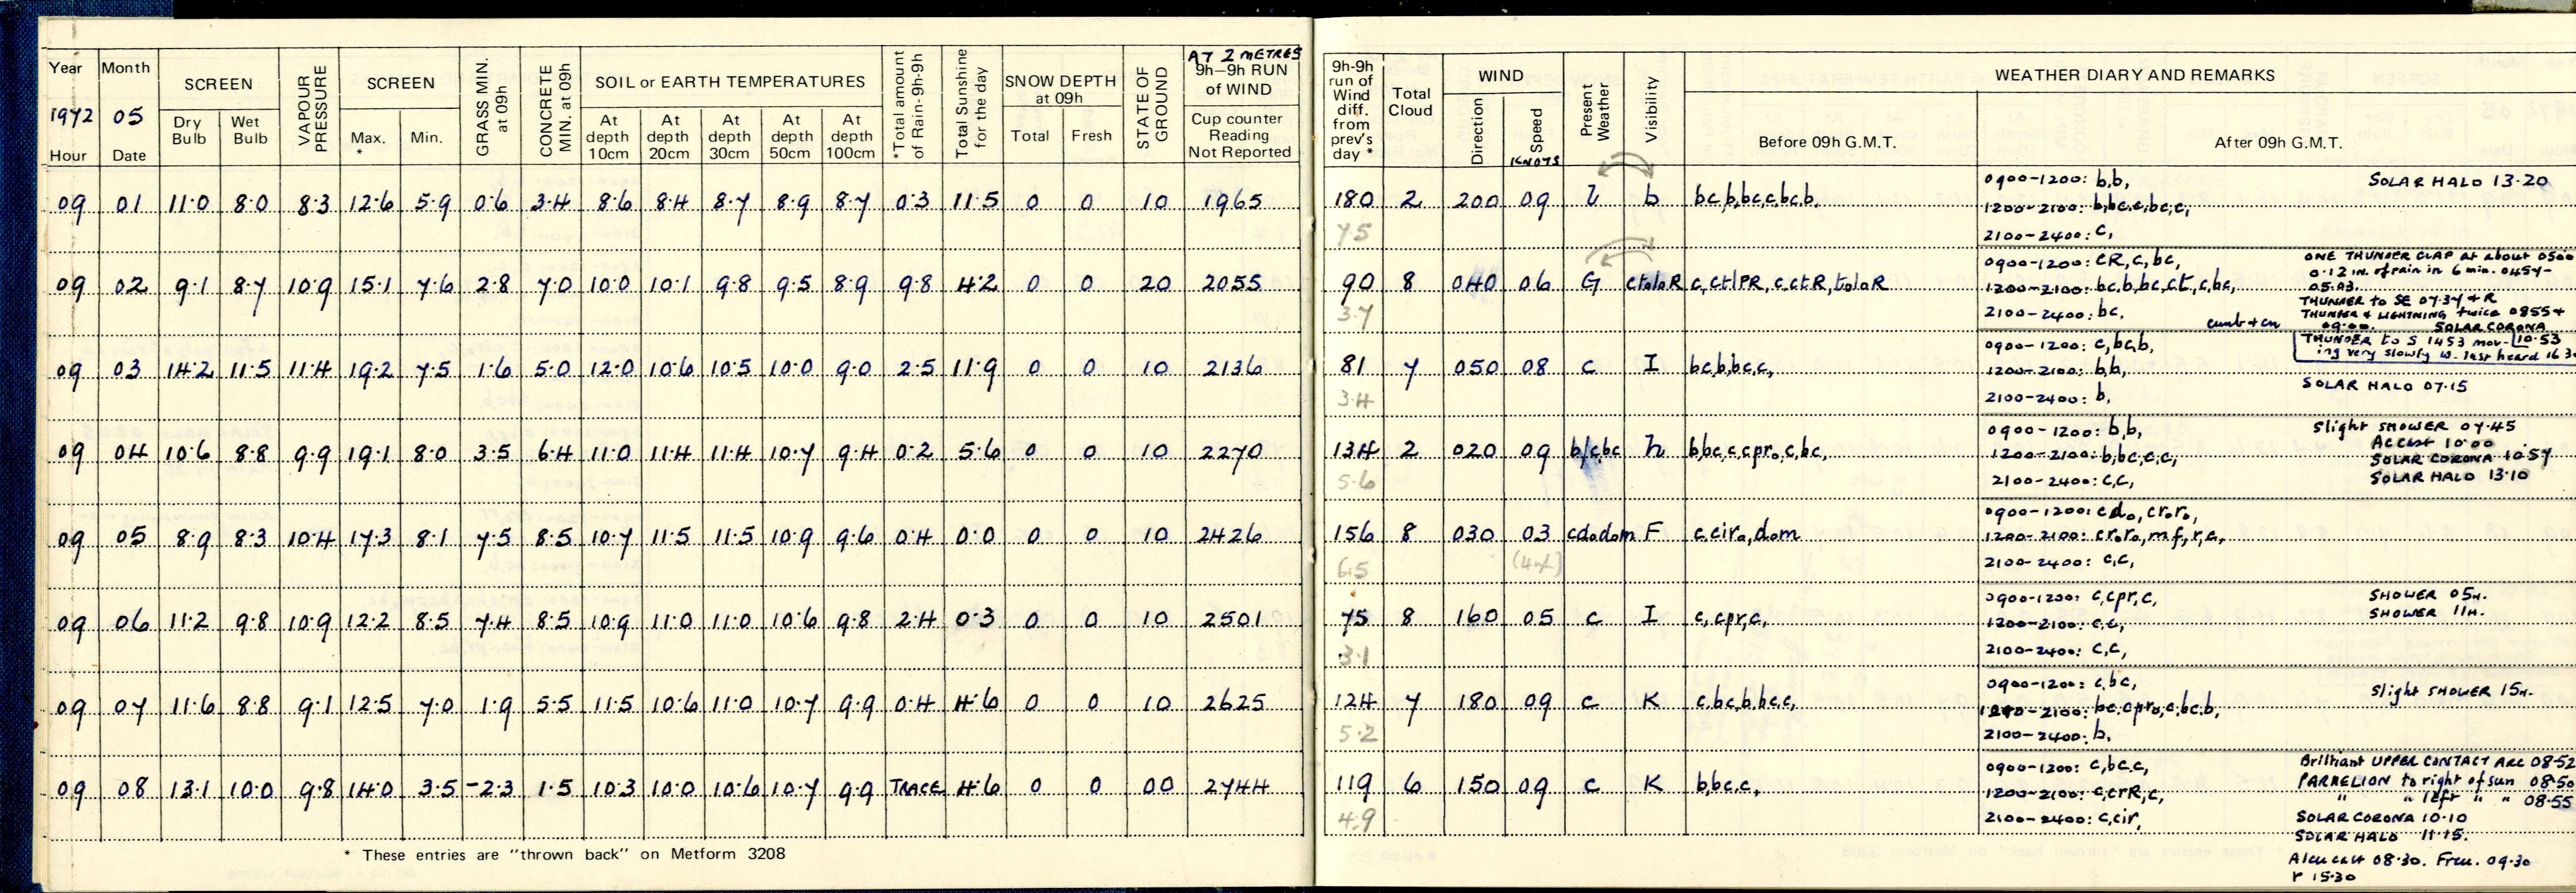 Year Month SCREEN VAPOUR PRESSURE SCREEN GRASS MIN. at 09h CONCRETE MIN. at 09h SOIL or EARTH TEMPERATURES *Total amount of Rain-9h-9h Total Sunshine for the day SNOW DEPTH at 09h STATE OF GROUND AT 2 METRES 9h-9h RUN of WIND
1972 05 Dry Bulb Wet Bulb Max. * Min. At depth 10cm At depth 20cm At depth 30cm At depth 50cm At depth 100cm Total Fresh Cup counter Reading Not Reported
Hour Date
09 01 11.0 8.0 8.3 12.6 5.9 0.6 3.4 8.6 8.4 8.7 8.9 8.7 0.3 11.5 0 0 10 1965
09 02 9.1 8.7 10.9 15.1 7.6 2.8 7.0 10.0 10.1 9.8 9.5 8.9 9.8 4.2 0 0 20 2055
09 03 14.2 11.5 11.4 19.2 7.5 1.6 5.0 12.0 10.6 10.5 10.0 9.0 2.5 11.9 0 0 10 2136
09 04 10.6 8.8 9.9 19.1 8.0 3.5 6.4 11.0 11.4 11.4 10.7 9.4 0.2 5.6 0 0 10 2270
09 05 8.9 8.3 10.4 17.3 8.1 7.5 8.5 10.7 11.5 11.5 10.9 9.6 0.4 0.0 0 0 10 2426
09 06 11.2 9.8 10.9 12.2 8.5 7.4 8.5 10.9 11.0 11.0 10.6 9.8 2.4 0.3 0 0 10 2501
09 07 11.6 8.8 9.1 12.5 7.0 1.9 5.5 11.5 10.6 11.0 10.7 9.9 0.4 4.6 0 0 10 2625
09 08 13.1 10.0 9.8 14.0 3.5 -2.3 1.5 10.3 10.0 10.6 10.7 9.9 TRACE 4.6 0 0 00 2744
* These entries are "thrown back" on Metform 3208
9h-9h run of Wind diff. from prev's day * Total Cloud WIND Present Weather Visibility WEATHER DIARY AND REMARKS
Direction Speed KNOTS Before 09h G.M.T. After 09h G.M.T.
0900-1200: b,b, SOLAR HALO 13.20
180 2 200 09 b bc,b,bc,c,bc,b,
1200-2100: b,bc,c,bc,c,
7.5 2100-2400: c,
0900-1200: cR,c,bc, ONE THUNDER CLAP at about 0500
0.12 in. of rain in 6 min. 0457-
05.03.
90 8 040 06 G ctoloR c,ctlPR,c,ctR,toloR 1200-2100: bc,b,bc,ct,c,bc,
THUNDER to SE 07.34 + R
3.7 2100-2400: bc, THUNDER & LIGHTNING twice 0855 +
cumb + cn 09.00. SOLAR CORONA
10.53
0900-1200: c,bc,b, THUNDER to S 1453 mov-
ing very slowly W. last heard 16.3
81 7 050 08 c I bc,b,bc,c, 1200-2100: b,b,
SOLAR HALO 07.15
3.4 2100-2400: b,
0900-1200: b,b, Slight SHOWER 07.45
Ac cast 10.00
134 2 020 09 b/c,bc h b,bc,c,cpro,c,bc, 1200-2100: b,bc,c,c, SOLAR CORONA 10.57
5.6 2100-2400: c,c, SOLAR HALO 13.10
0900-1200: cdo,croro,
156 8 030 03 cdodom F c,ciro,dom 1200-2100: croro,mf,r,c,
6.5 2100-2400: c,c,
0900-1200: c,cpr,c, SHOWER 05H.
SHOWER 11H.
75 8 160 05 c I c,cpr,c, 1200-2100: c,c,
3.1 2100-2400: c,c,
0900-1200: c,bc, Slight SHOWER 15H.
124 7 180 09 c K c,bc,b,bc,c, 1200-2100: bc,cpro,c,bc,b,
5.2 2100-2400: b,
0900-1200: c,bc,c, Brilliant UPPER CONTACT ARC 08.52
PARHELION to right of sun 08.50
119 6 150 09 c K b,bc,c, 1200-2100: c,crR,c, " " left " " 08.55
4.9 2100-2400: c,cir, SOLAR CORONA 10.10
SOLAR HALO 11.15.
08.30. 09.30
r 15.30